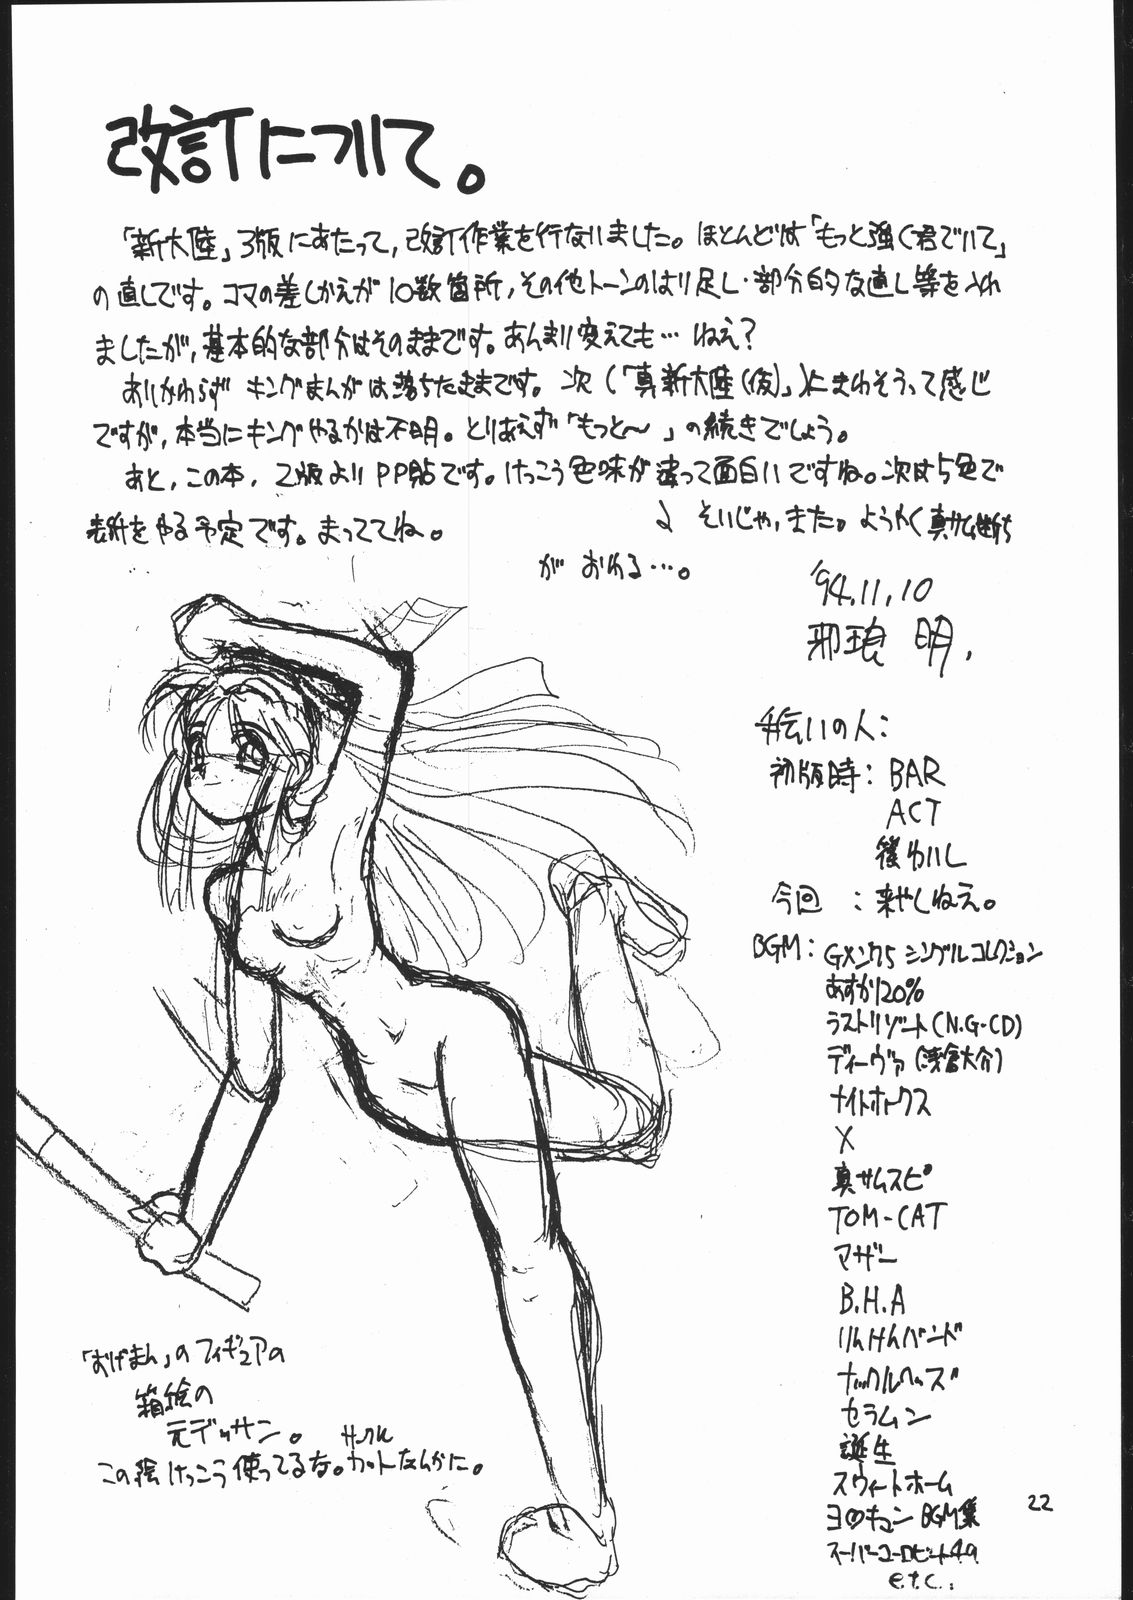 改訂について。
「新大陸」3版にあたって,改訂作業を行ないました。ほとんどは「もっと強く君でいて」
の直しです。コマの差しかえが10数箇所,その他トーンのはり足し・部分的な直し等を入れ
ましたが,基本的な部分はそのままです。あんまり変えても…ねえ?
あいかわらずキングまんがは落ちたままです。次(「真新大陸(仮)」)にまわそうって感じ
ですが,本当にキングやるかは不明。とりあえず「もっと〜」の続きでしょう。
あと,この本,2版よりPP貼です。けっこう色味が違って面白いですね。次は5色で
表紙をやる予定です。まっててね。
そいじゃ,また。ようやく真サム断ち
がおわる…。
'94.11.10
邪琅 明.
手伝いの人:
初版時:BAR
ACT
後わいし
今回:来やしねえ。
BGM:Gメン75 シングルコレクション
あすか120%
ラストリゾート(N.G-CD)
ディーヴァ(浅倉大介)
ナイトホークス
X
真サムスピ
TOM-CAT
マザー
B.H.A
りんけんバンド
ナックルヘッズ
セラムン
誕生
スウィートホーム
BGM集
スーパーユーロビート49
e.t.c.
「おげまん」のフィギュアの
箱絵の
元デッサン。
この絵けっこう使ってるな。カットなんかに。
22